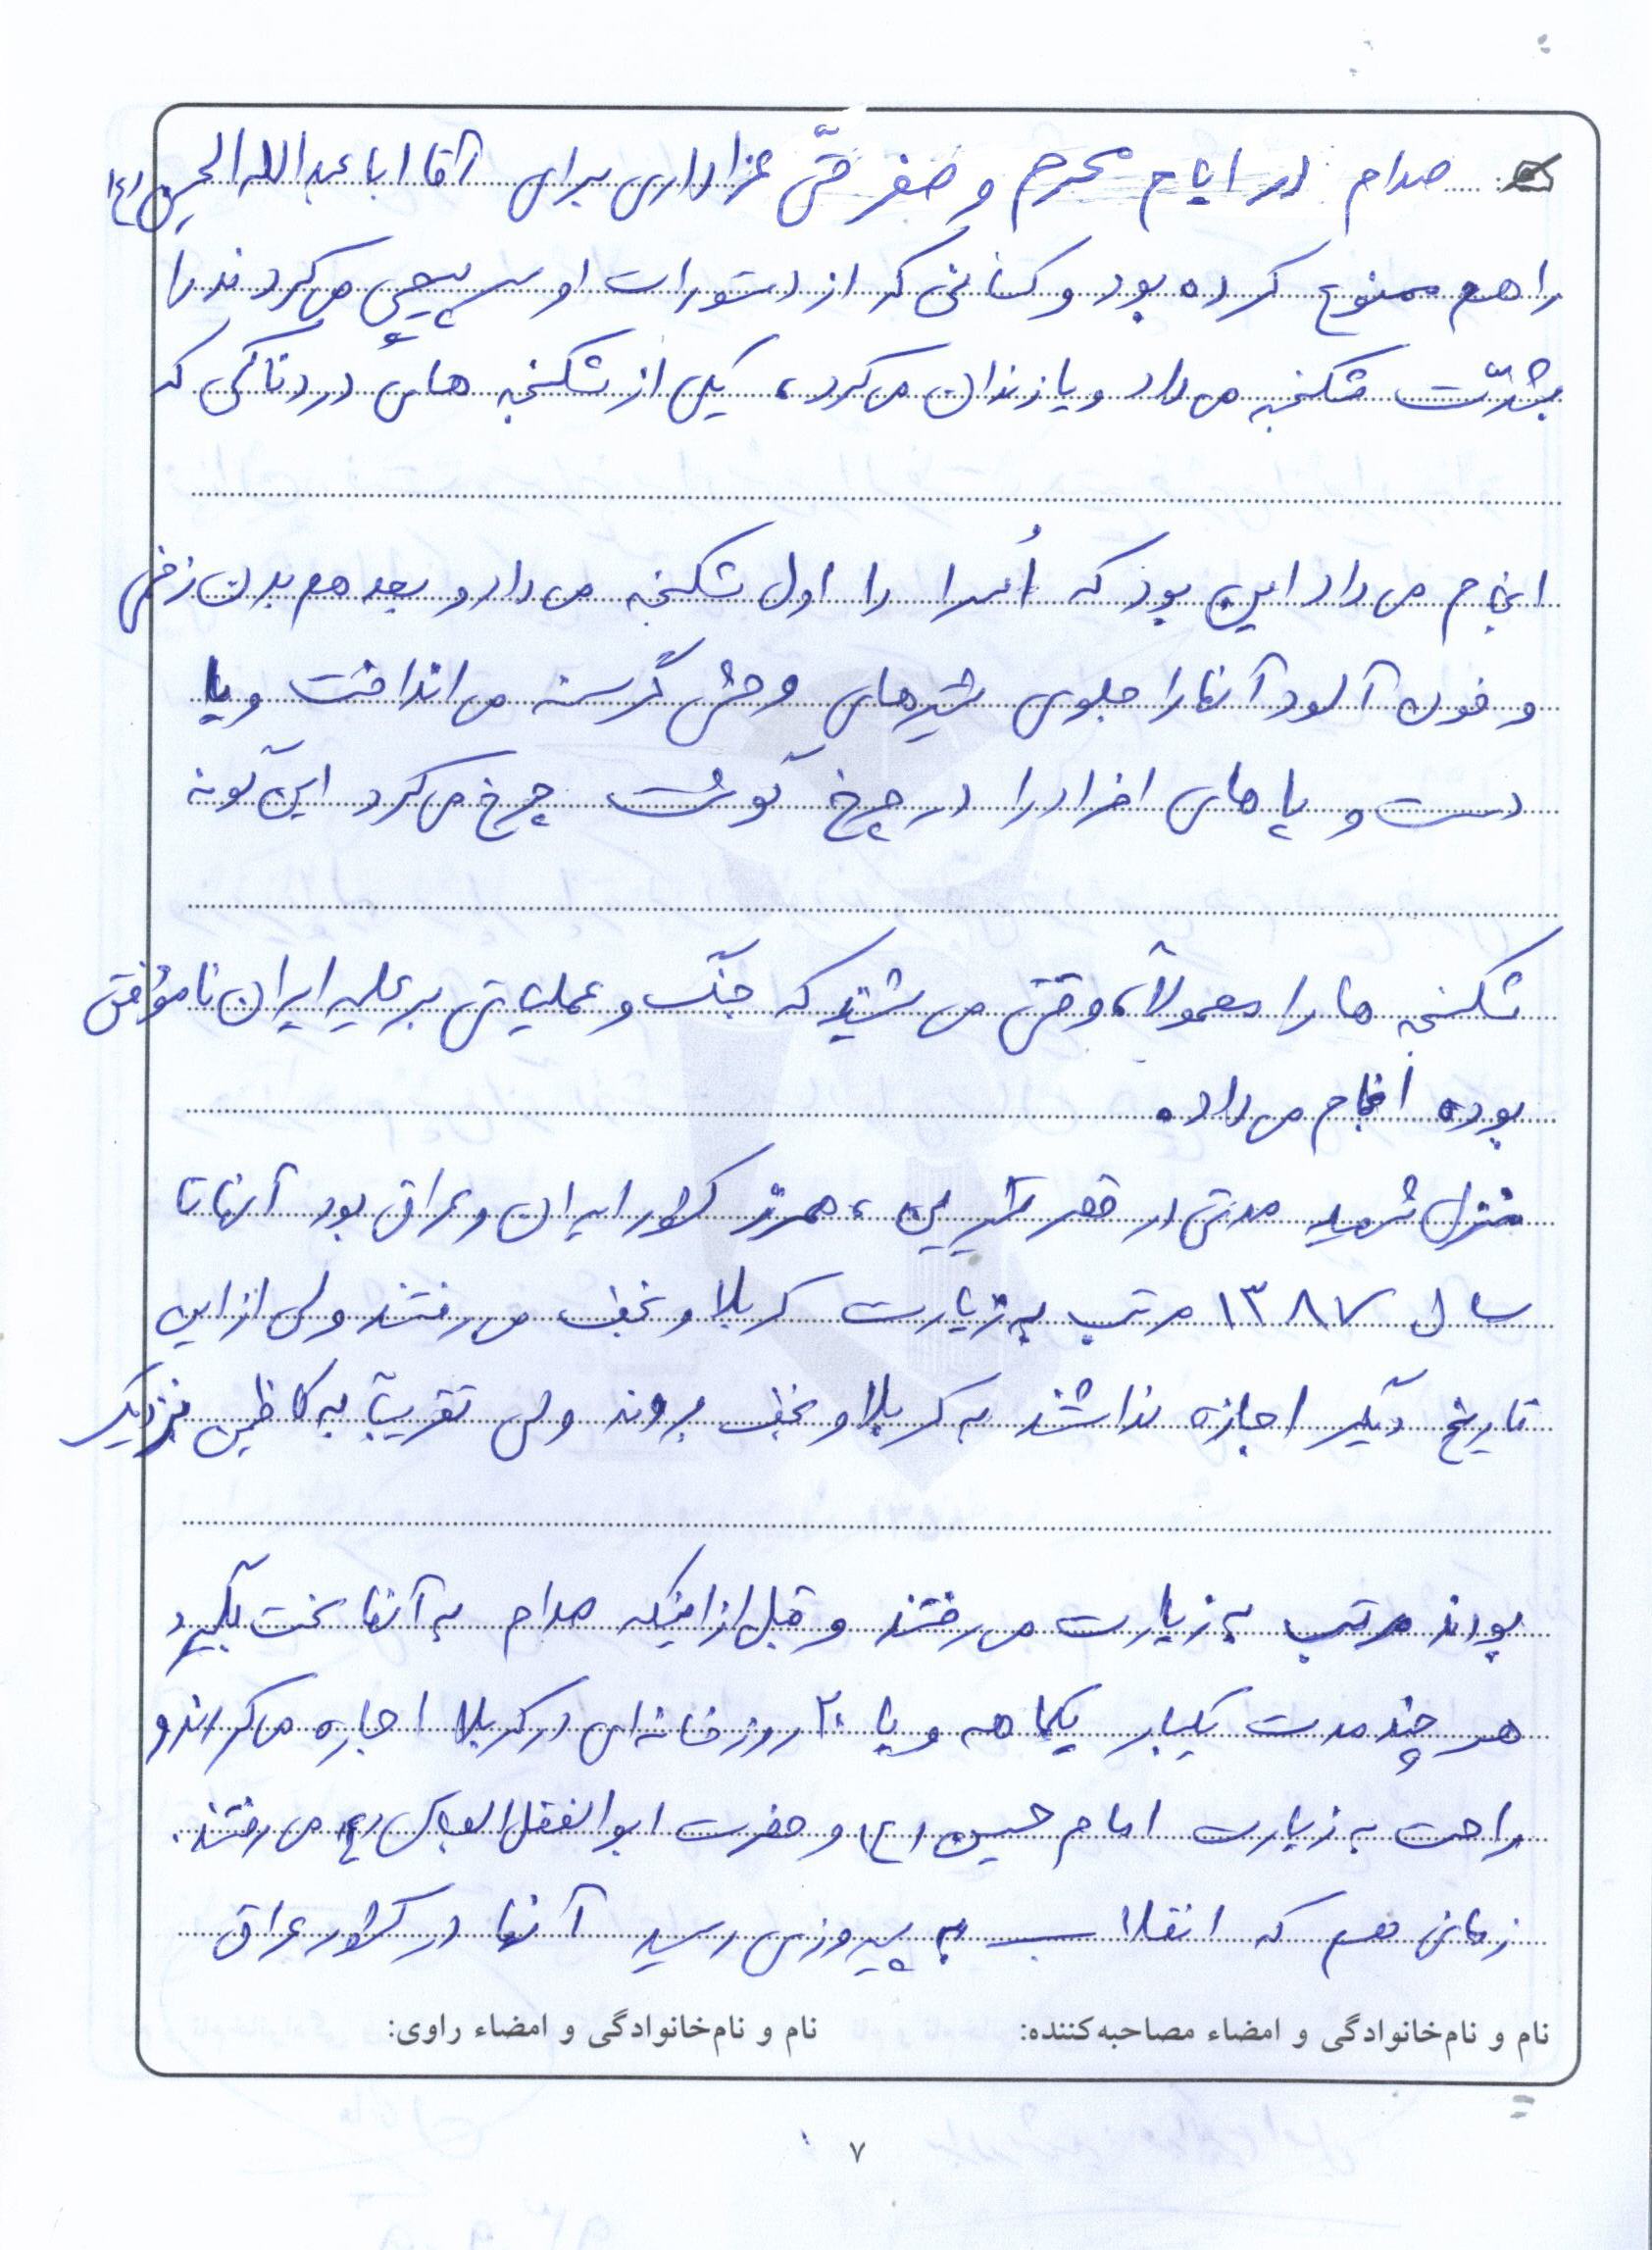 صدام در ایام محرم و صفر حتّی عزاداری برای آقا ابا عبدالله الحسین (ع)
را هم ممنوع کرده بود و کسانی که از دستورات او سرپیچی می‌کردند را
بشدّت شکنجه می‌داد و یا زندان می‌کرد، یکی از شکنجه های دردناکی که
انجام می‌داد این بود که اُسرا را اول شکنجه می‌داد و بعد هم بدن زخمی
و خون آلود آنها را جلوی شیرهای وحشی گرسنه می‌انداخت و یا
دست و پاهای افراد را در چرخ گوشت چرخ می‌کرد این گونه
شکنجه ها را معمولاً، وقتی می شد که جنگ و عملیاتی بر علیه ایران ناموفق
بوده انجام می‌داد.
منزل شهید مدتی در قصر شیرین، همرز کشور ایران و عراق بود آنها تا
سال ۱۳۸۷ مرتب به زیارت کربلا و نجف می‌رفتند ولی از این
تاریخ دیگر اجازه نداشتند به کربلا و نجف بروند ولی تقریباً به کاظمین نزدیک
بودند مرتب به زیارت می‌رفتند و قبل از اینکه صدام به آنها سخت بگیرد
هر چند مدت یکبار یکماهه و یا ۲۰ روز خانه‌ای در کربلا اجاره می‌کردند و
راحت به زیارت امام حسین (ع) و حضرت ابوالفضل العباس (ع) می‌رفتند.
زمانی هم که انقلاب به پیروزی رسید آنها در کشور عراق
نام و نام‌خانوادگی و امضاء مصاحبه‌کننده: نام و نام‌خانوادگی و امضاء راوی:
۷